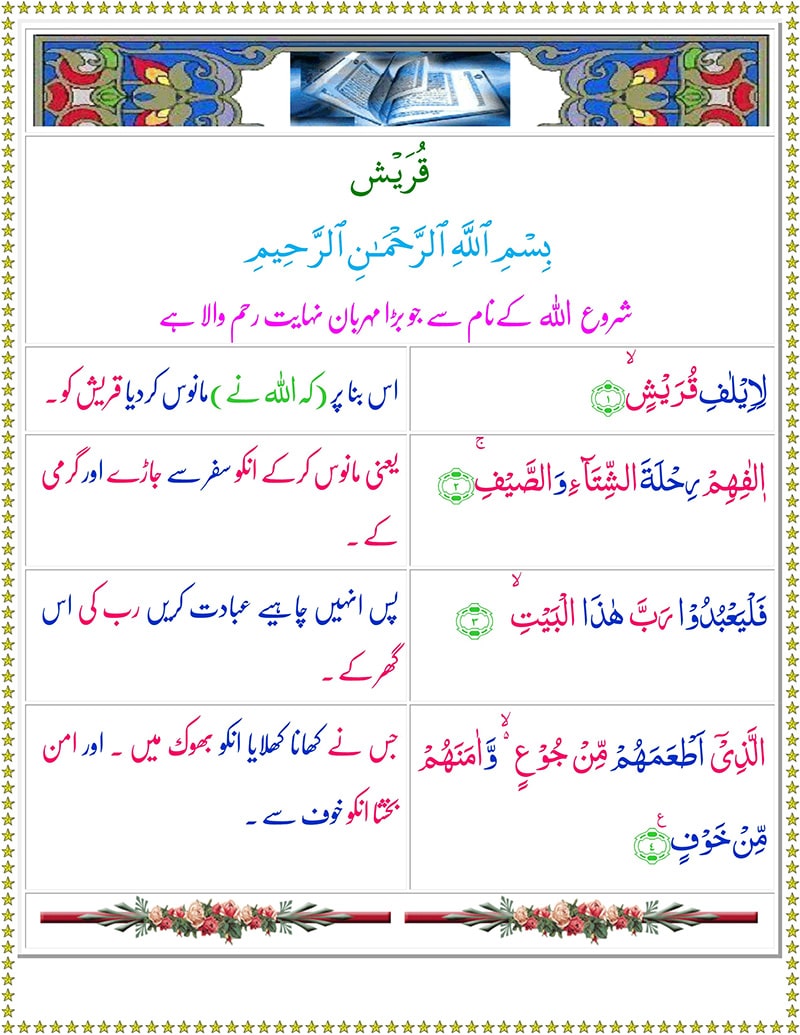 قُرَيْش
بِسْمِ ٱللَّهِ ٱلرَّحْمَٰنِ ٱلرَّحِيمِ
شروع اللہ کے نام سے جو بڑا مہربان نہایت رحم والا ہے
لِاِيْلٰفِ قُرَيْشٍۙ ﴿۱﴾
اس بنا پر (کہ اللہ نے) مانوس کردیا قریش کو۔
اٖلٰفِهِمْ رِحْلَةَ الشِّتَآءِ وَالصَّيْفِۚ ﴿۲﴾
یعنی مانوس کرکے انکو سفر سے جاڑے اور گرمی
کے ۔
فَلْيَعْبُدُوْا رَبَّ هٰذَا الْبَيْتِۙ ﴿۳﴾
پس انہیں چاہیے عبادت کریں رب کی اس
گھر کے ۔
الَّذِىْٓ اَطْعَمَهُمْ مِّنْ جُوْعٍ ۙ وَّاٰمَنَهُمْ
مِّنْ خَوْفٍ ﴿۴﴾ ع
جس نے کھانا کھلایا انکو بھوک میں ۔ اور امن
بخشا انکو خوف سے ۔